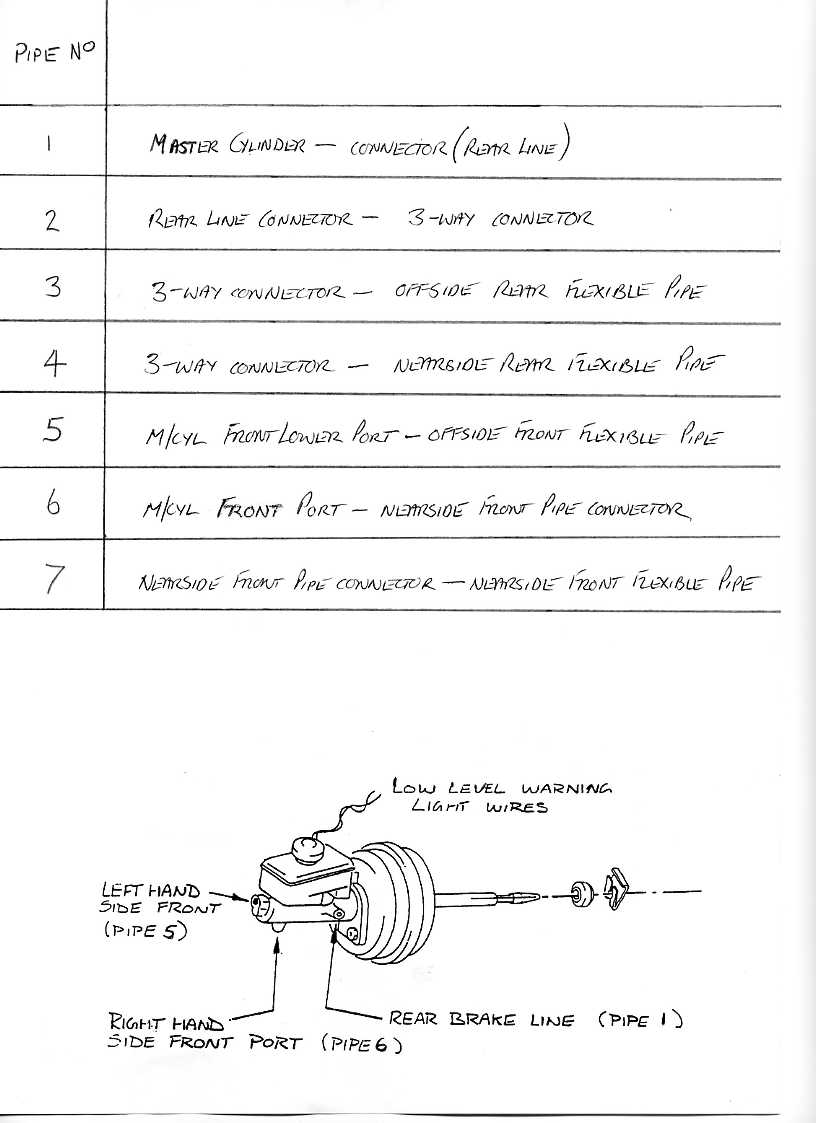 PIPE NO
1 MASTER CYLINDER – CONNECTOR (REAR LINE)
2 REAR LINE CONNECTOR – 3-WAY CONNECTOR
3 3-WAY CONNECTOR – OFFSIDE REAR FLEXIBLE PIPE
4 3-WAY CONNECTOR – NEARSIDE REAR FLEXIBLE PIPE
5 M/CYL FRONT LOWER PORT – OFFSIDE FRONT FLEXIBLE PIPE
6 M/CYL FRONT PORT – NEARSIDE FRONT PIPE CONNECTOR
7 NEARSIDE FRONT PIPE CONNECTOR – NEARSIDE FRONT FLEXIBLE PIPE
LOW LEVEL WARNING
LIGHT WIRES
LEFT HAND
SIDE FRONT
(PIPE 5)
RIGHT HAND
SIDE FRONT PORT (PIPE 6)
REAR BRAKE LINE (PIPE 1)